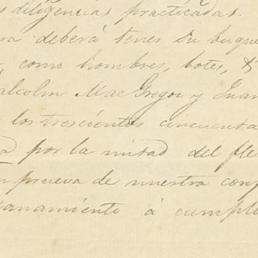 diligencias practicadas.
deberá tener su buque
, como hombres, botes, &
Malcolm MacGregor y Juan
los trescientos cincuenta
por la mitad del fle
prueva de nuestra con
anamiento á cumpli